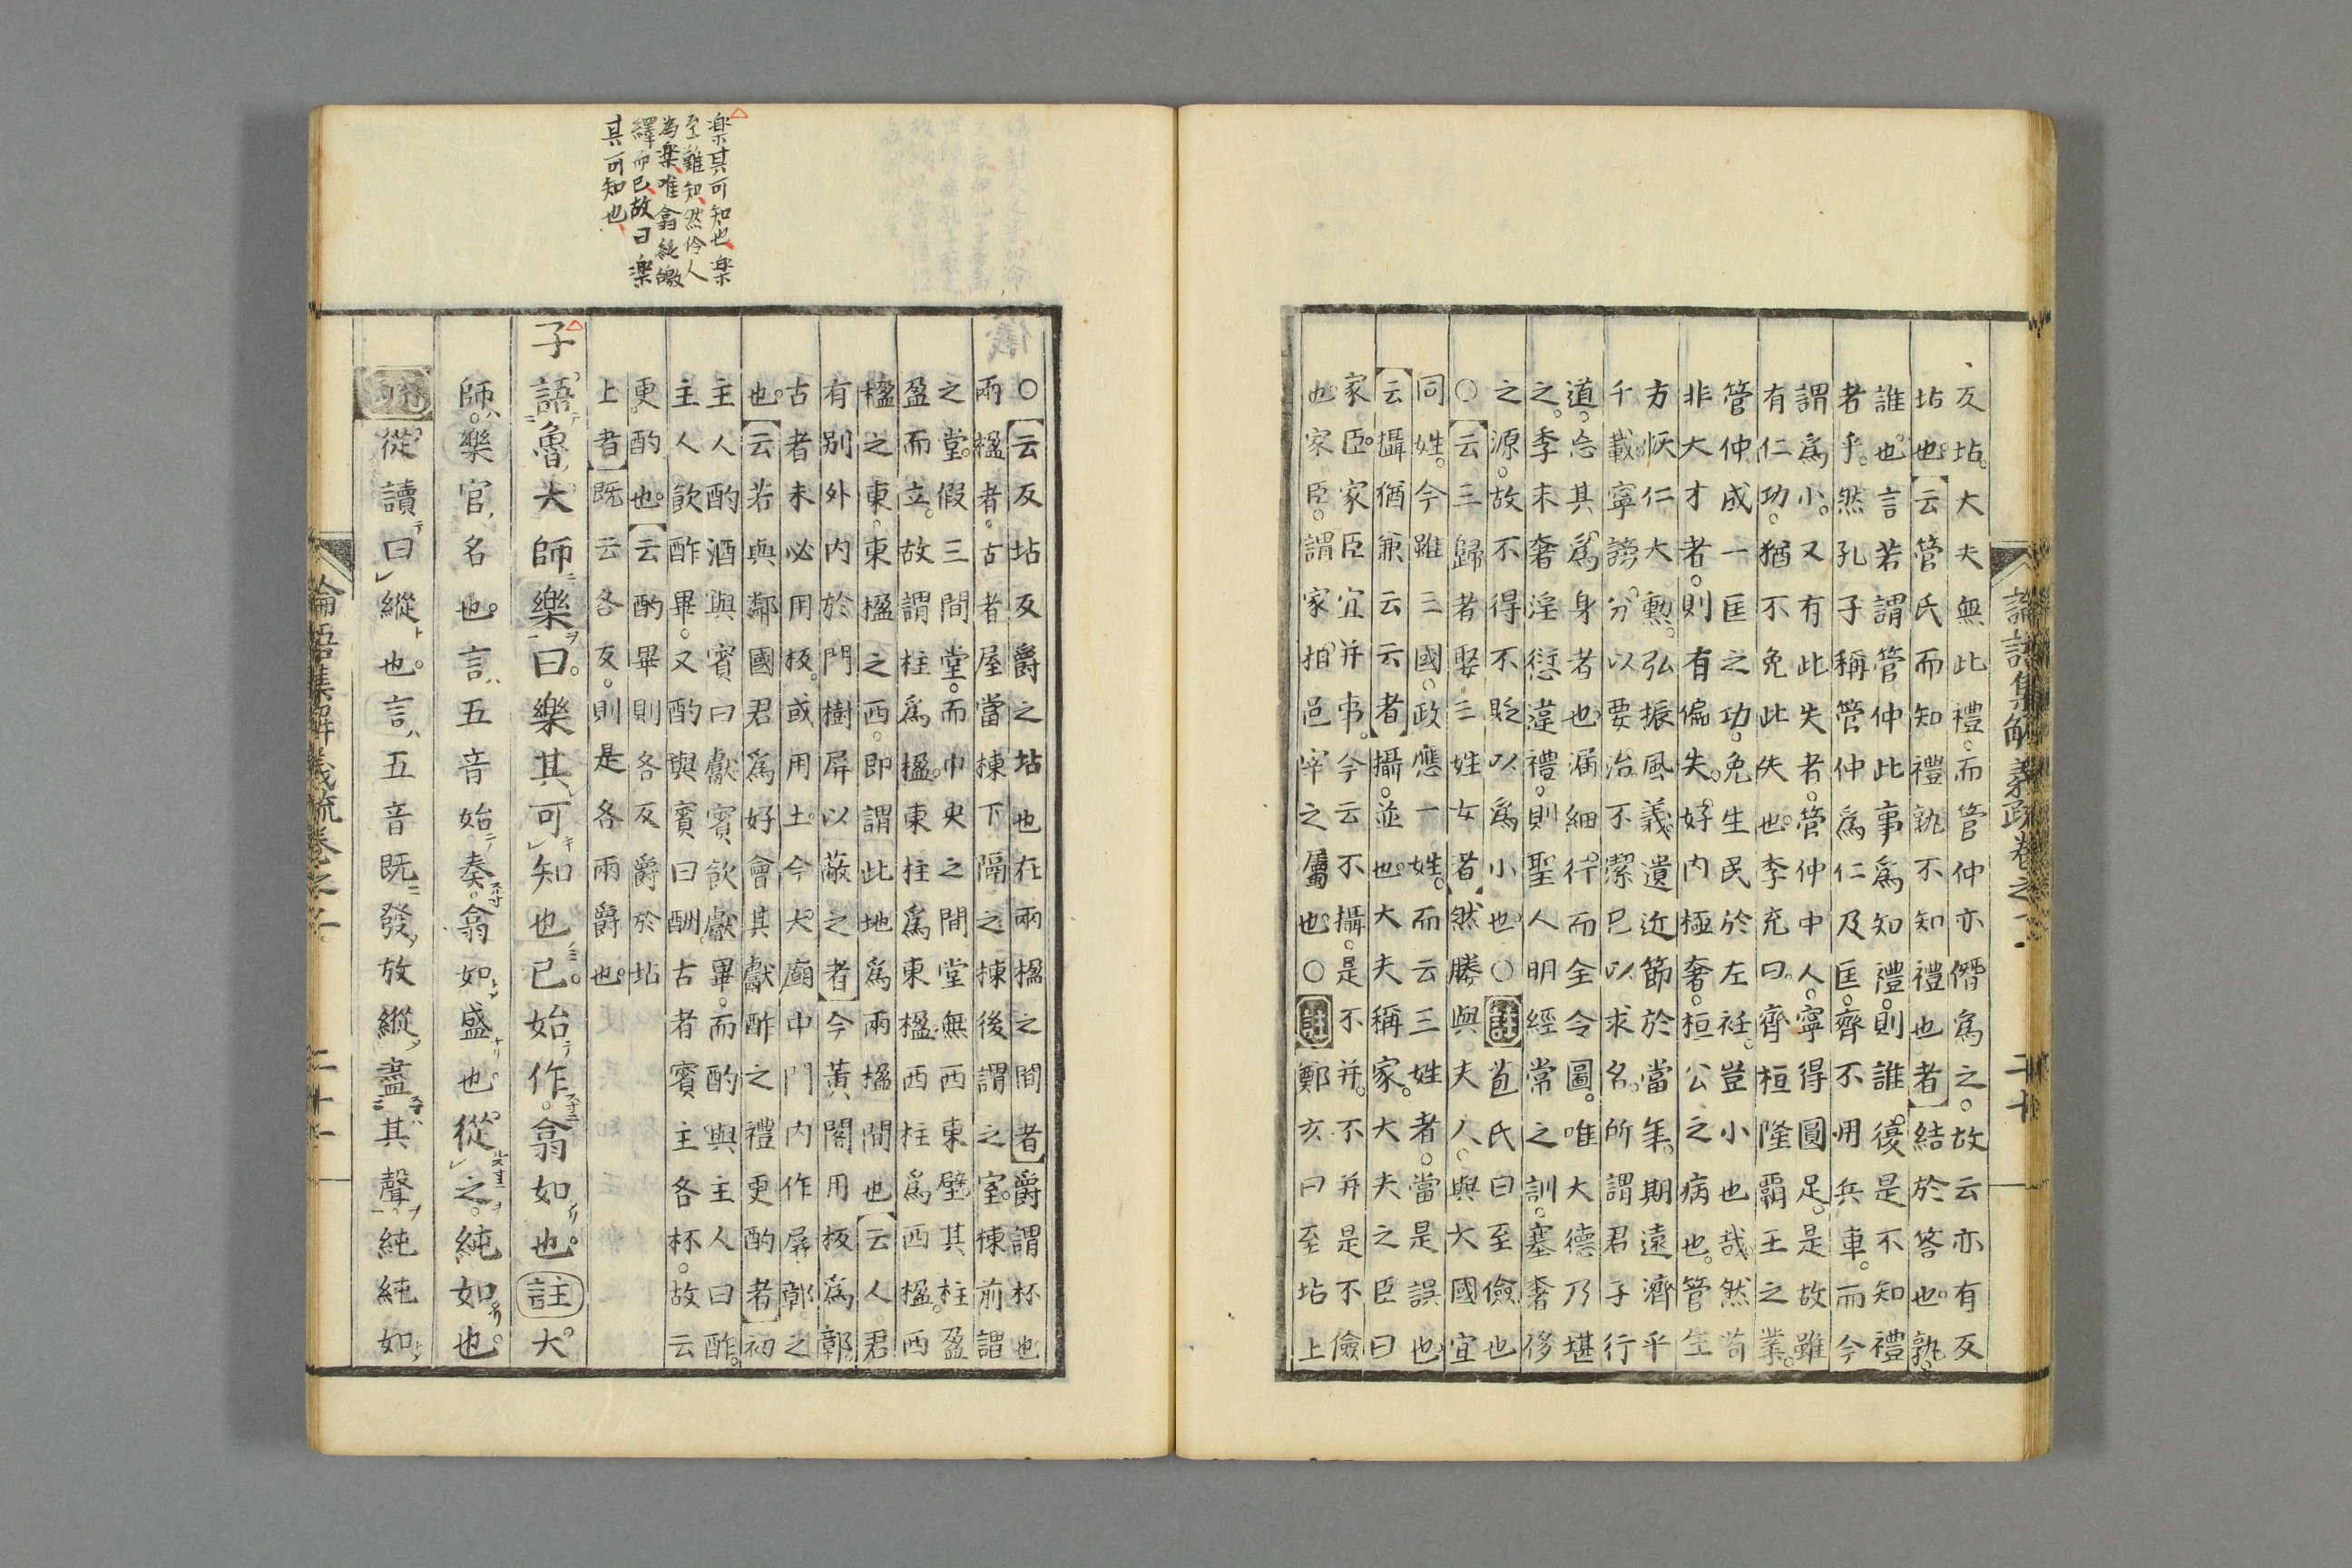 反坫大夫無此禮而管仲亦僭爲之故云亦有反
坫也云管氏而知禮孰不知禮也者結於答也孰
誰也言若謂管仲此事爲知禮則誰復是不知禮
者乎然孔子稱管仲爲仁及匡齊不用兵車而今
謂爲小又有此失者管仲中人寧得圓足是故雖
有仁功猶不免此失也李充曰齊桓隆霸王之業
管仲成一匡之功免生民於左衽豈小也哉然苟
非大才者則有偏失好内極奢桓公之病也管生
方恢仁大勲弘振風義遺近節於當年期遠濟乎
千載寧謗分以要治不潔己以求名所謂君子行
道忘其爲身者也漏細行而全令圖唯大德乃堪
之季末奢淫愆違禮則聖人明經常之訓塞奢侈
之源故不得不貶以爲小也○註苞氏曰至儉也
○云三歸者娶三姓女者然勝與夫人與大國宜
同姓今雖三國政應一姓而云三姓者當是誤也
云攝猶兼云云者攝並也大夫稱家大夫之臣曰
家臣家臣宜并事今云不攝是不并不并是不儉
也家臣謂家相邑宰之屬也○註鄭玄曰至坫上
論語集解義疏卷之二
二十
○云反坫反爵之坫也在兩楹之間者爵謂杯也
兩楹者古者屋當棟下隔之棟後謂之室棟前謂
之堂假三間堂而中央之間堂無西東壁其柱盈
盈而立故謂柱爲楹東柱爲東楹西柱爲西楹西
楹之東東楹之西即謂此地爲兩楹間也云人君
有别外内於門樹屏以蔽之者今黃閣用板爲鄣
古者未必用板或用土今大廟中門内作屏鄣之
也云若與鄰國君爲好會其獻酢之禮更酌者初
主人酌酒與賓曰獻賓飲獻畢而酌與主人曰酢
主人飲酢畢又酌與賓曰酬古者賓主各杯故云
更酌也云酌畢則各反爵於坫
上者既云各反則是各兩爵也
子語魯大師樂曰樂其可知也已始作翕如也註大
師樂官名也言五音始奏翕如盛也從之純如也
從讀曰縱也言五音既發放縱盡其聲純純如
論語集解義疏卷之二
二十一
楽其可知也楽
至難知然伶人
為楽唯翕純皦
繹而已故曰楽
其可知也